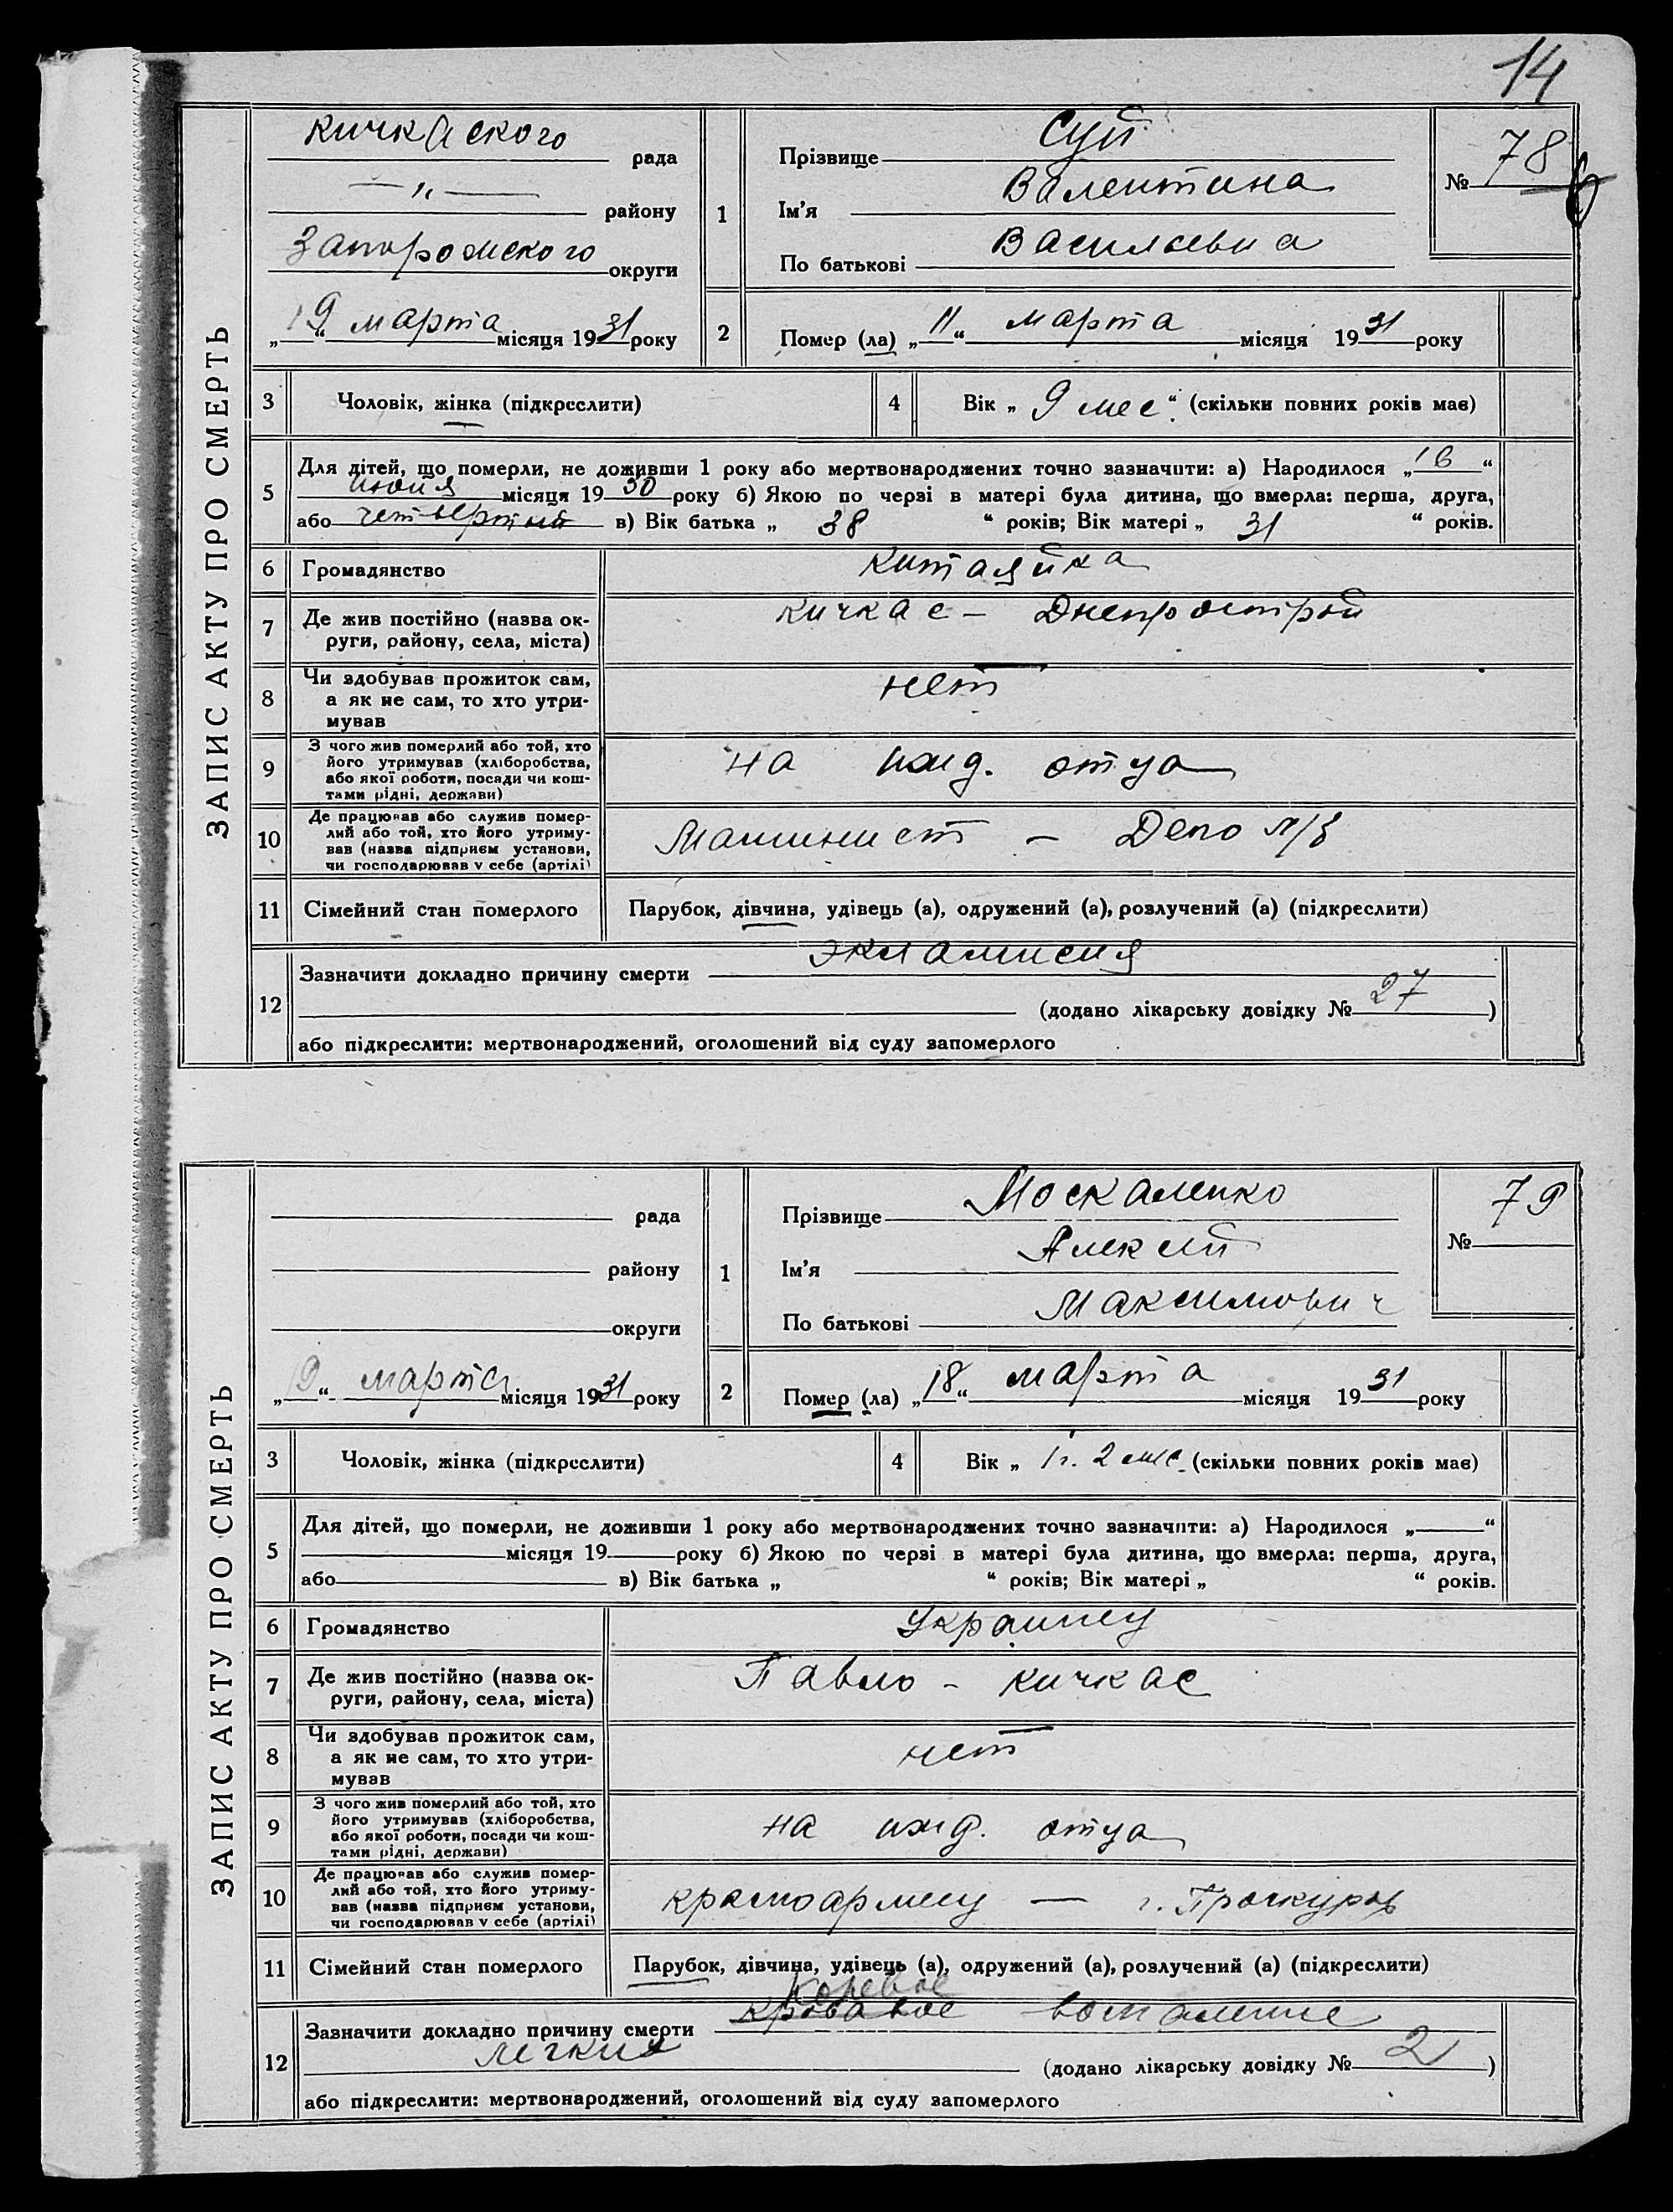 14
ЗАПИС АКТУ ПРО СМЕРТЬ
кичкаского рада
— „ — району
Запорожского округи
„19“ марта місяця 1931 року
1
Прізвище Суй
Ім'я Валентина
По батькові Васильевна
№ 78
2
Помер (ла) „11“ марта місяця 1931 року
3 Чоловік, жінка (підкреслити)
4 Вік „9 мес“ (скільки повних років має)
5 Для дітей, що померли, не доживши 1 року або мертвонароджених точно зазначити: а) Народилося „16“
июня місяця 1930 року б) Якою по черзі в матері була дитина, що вмерла: перша, друга,
або четвертый в) Вік батька „ 38 “ років; Вік матері „ 31 “ років.
6 Громадянство китаянка
7 Де жив постійно (назва ок-
руги, району, села, міста) кичкас — Днепрострой
8 Чи здобував прожиток сам,
а як не сам, то хто утри-
мував нет
9 З чого жив померлий або той, хто
його утримував (хліборобства,
або якої роботи, посади чи кош-
тами рідні, держави) на ижд. отца
10 Де працював або служив помер-
лий або той, хто його утриму-
вав (назва підприєм установи,
чи господарював у себе (артілі) Машинист — Депо
11 Сімейний стан померлого Парубок, дівчина, удівець (а), одружений (а), розлучений (а) (підкреслити)
12 Зазначити докладно причину смерти эклампсия
(додано лікарську довідку № 27)
або підкреслити: мертвонароджений, оголошений від суду запомерлого
ЗАПИС АКТУ ПРО СМЕРТЬ
рада
району
округи
„19“ марта місяця 1931 року
1
Прізвище Москаленко
Ім'я Алексей
По батькові Максимович
№ 79
2
Помер (ла) „18“ марта місяця 1931 року
3 Чоловік, жінка (підкреслити)
4 Вік „1 г. 2 мес. (скільки повних років має)
5 Для дітей, що померли, не доживши 1 року або мертвонароджених точно зазначити: а) Народилося „ “
місяця 19 року б) Якою по черзі в матері була дитина, що вмерла: перша, друга,
або в) Вік батька „ “ років; Вік матері „ “ років.
6 Громадянство Украинец
7 Де жив постійно (назва ок-
руги, району, села, міста) Павло - кичкас
8 Чи здобував прожиток сам,
а як не сам, то хто утри-
мував нет
9 З чого жив померлий або той, хто
його утримував (хліборобства,
або якої роботи, посади чи кош-
тами рідні, держави) на ижд. отца
10 Де працював або служив помер-
лий або той, хто його утриму-
вав (назва підприєм установи,
чи господарював у себе (артілі) красноармеец — г. Проскуров
11 Сімейний стан померлого Парубок, дівчина, удівець (а), одружений (а), розлучений (а) (підкреслити)
коревое
12 Зазначити докладно причину смерти кровавое воспаление
легких (додано лікарську довідку № 2)
або підкреслити: мертвонароджений, оголошений від суду запомерлого